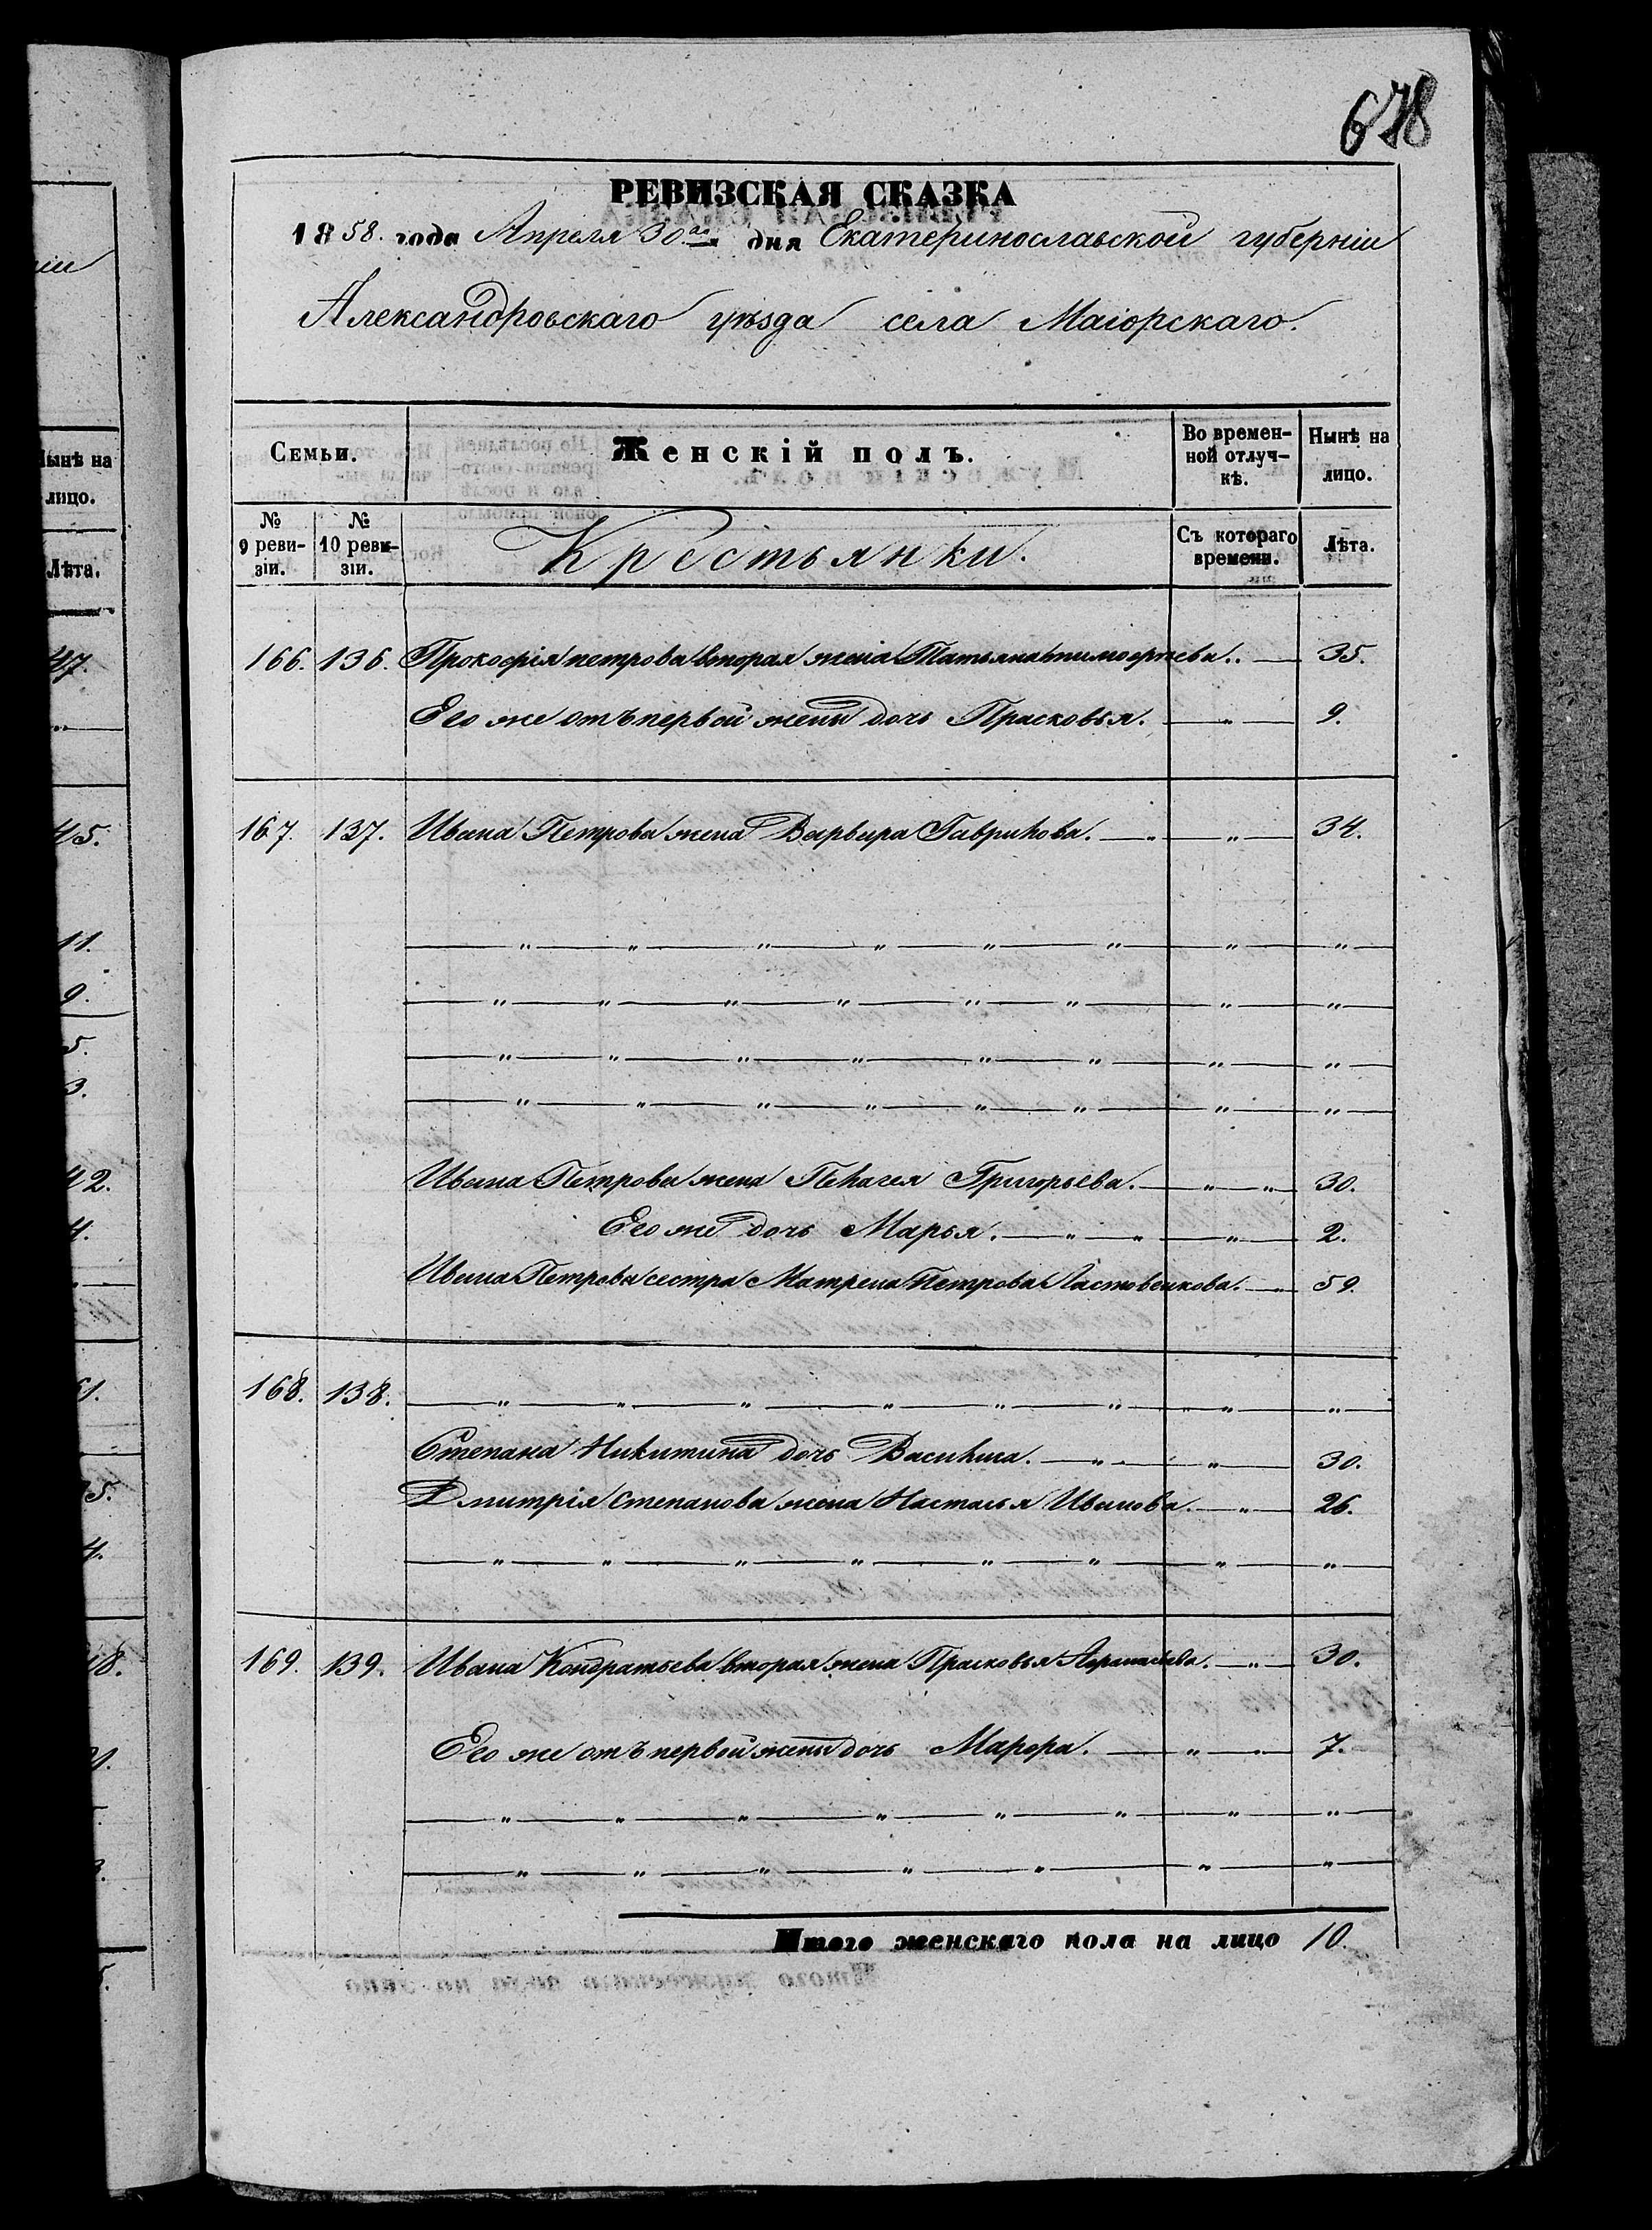 678
РЕВИЗСКАЯ СКАЗКА
1858. года Апреля 30го дня Екатеринославской губерніи
Александровскаго уѣзда села Маіорскаго.
Семьи. Женскій полъ. Во времен- Нынѣ на
ной отлуч- лицо.
кѣ.
№ № Крестьянки. Съ котораго Лѣта.
9 реви- 10 реви- времени.
зіи. зіи.
166. 136. Прокофія петрова вторая жена Татьяна тимофѣева. 35.
Его же отъ первой жены дочь Прасковья. " 9.
167. 137. Ивана Петрова жена Варвара Гаврилова. " " 34.
" " " " " " " "
" " " " " " " "
" " " " " " " "
" " " " " " " "
Ивана Петрова жена Пелагея Григорьева. " " 30.
Его же дочь Марья. " " " 2.
Ивана Петрова сестра Матрена Петрова Ластовенкова. " 59.
168. 138. " " " " " " " " "
Степана Никитина дочь Василиса. " " 30.
Дмитрія Степанова жена Настасья Иванова. " 26.
" " " " " " " "
169. 139. Ивана Кондратьева вторая жена Прасковья Афанасьева. " 30.
Его же отъ первой жены дочь Марфа. " " 7.
" " " " " " " "
" " " " " " "
Итого женскаго пола на лицо 10.
ніи
Нынѣ на
лицо.
Лѣта.
47.
45.
11.
9.
5.
3.
42.
4.